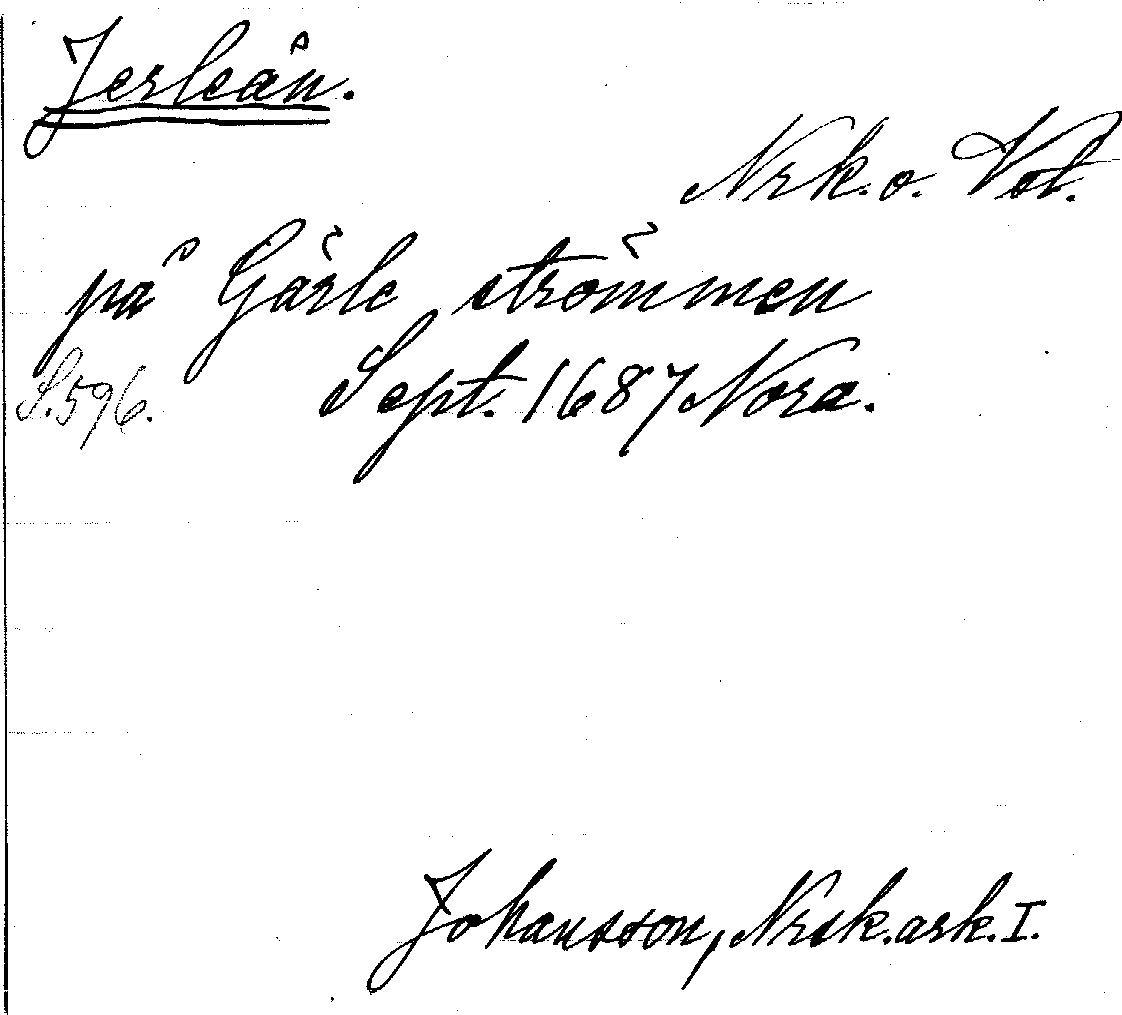 Jerleån.
Nrk. o. Vst.
på Gärle strömmen
S. 596. Sept. 1687 Nora.
Johansson, Nrsk. ark. I.